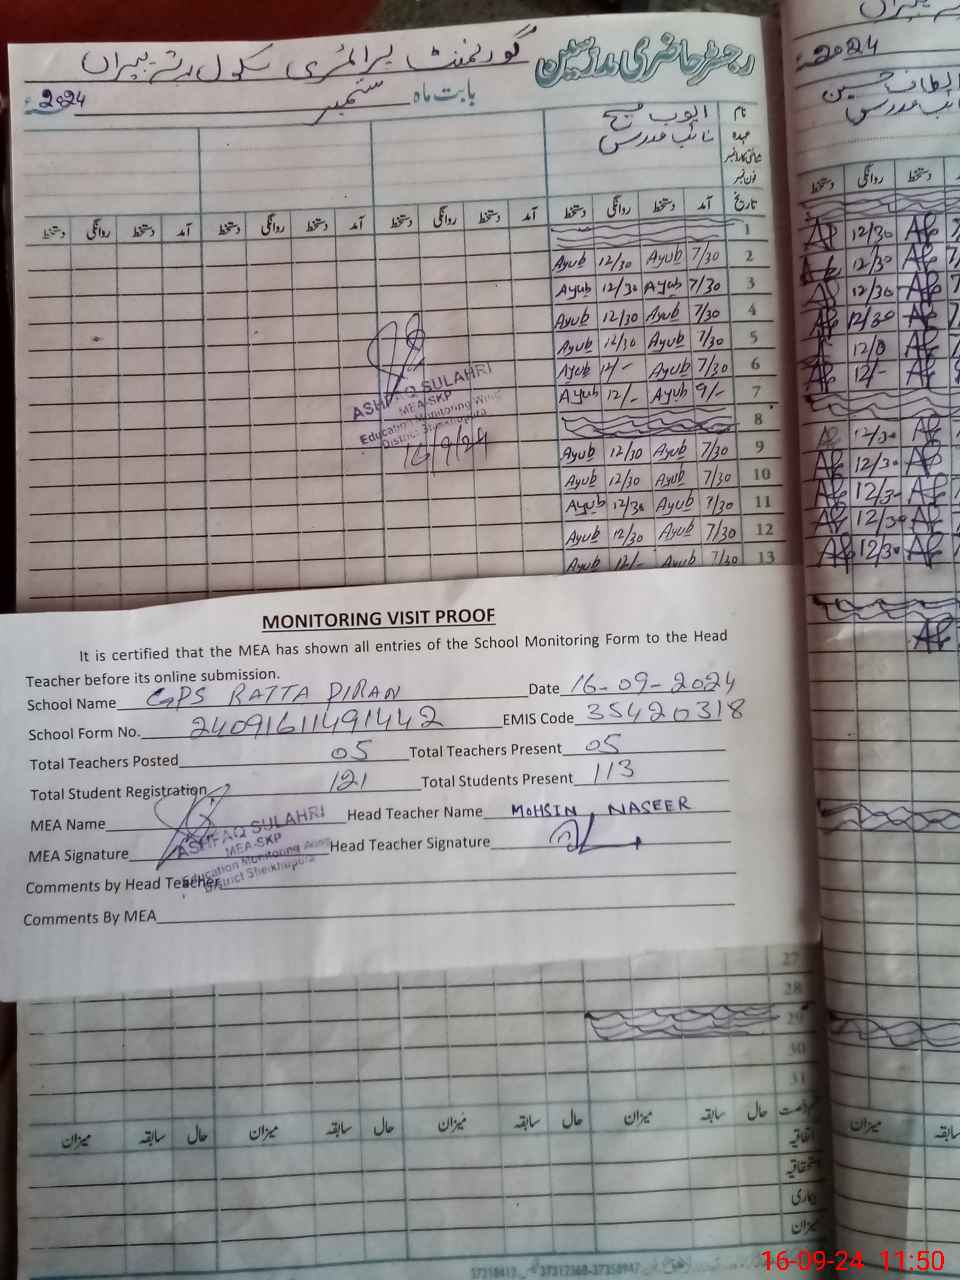 رجسٹر حاضری مدرسین
گورنمنٹ پرائمری سکول رتہ پیراں
بابت ماہ ستمبر 2024
نام ایوب مسیح
عہدہ نائب مدرس
شناختی کارڈ نمبر
فون نمبر
تاریخ آمد دستخط روانگی دستخط آمد دستخط روانگی دستخط آمد دستخط روانگی دستخط
1
Ayub 12/30 Ayub 7/30 2
Ayub 12/30 Ayub 7/30 3
Ayub 12/30 Ayub 7/30 4
Ayub 12/30 Ayub 7/30 5
Ayub 12/- Ayub 7/30 6
Ayub 12/- Ayub 9/- 7
8
Ayub 12/30 Ayub 7/30 9
Ayub 12/30 Ayub 7/30 10
Ayub 12/30 Ayub 7/30 11
Ayub 12/30 Ayub 7/30 12
Ayub 12/- Ayub 7/30 13
ASHFAQ SULAHRI
MEA-SKP
Education Monitoring Wing
District Sheikhupura
16/9/24
MONITORING VISIT PROOF
It is certified that the MEA has shown all entries of the School Monitoring Form to the Head
Teacher before its online submission.
School Name GPS RATTA PIRAN Date 16-09-2024
School Form No. 24091611491442 EMIS Code 35420318
Total Teachers Posted 05 Total Teachers Present 05
Total Student Registration 121 Total Students Present 113
MEA Name Head Teacher Name MOHSIN NASEER
ASHFAQ SULAHRI
MEA-SKP
Education Monitoring Wing
District Sheikhupura
MEA Signature Head Teacher Signature
Comments by Head Teacher
Comments By MEA
27
28
29
30
31
حال سابقہ میزان حال سابقہ میزان حال سابقہ میزان حال سابقہ میزان
اتفاقیہ
استحقاقیہ
بیماری
میزان
2024
الطاف حسین
نائب مدرس
دستخط روانگی دستخط
12/30
12/30
12/30
12/30
12/-
12/30
12/30
12/30
12/30
12/30
میزان سابقہ
16-09-24 11:50